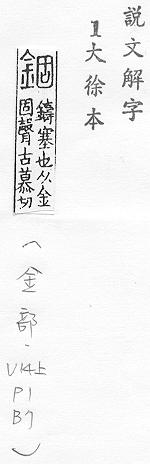 説文解字
1大徐本
錮鑄塞也从金
固聲古慕切
(金部·
V14上
P1
B7
)